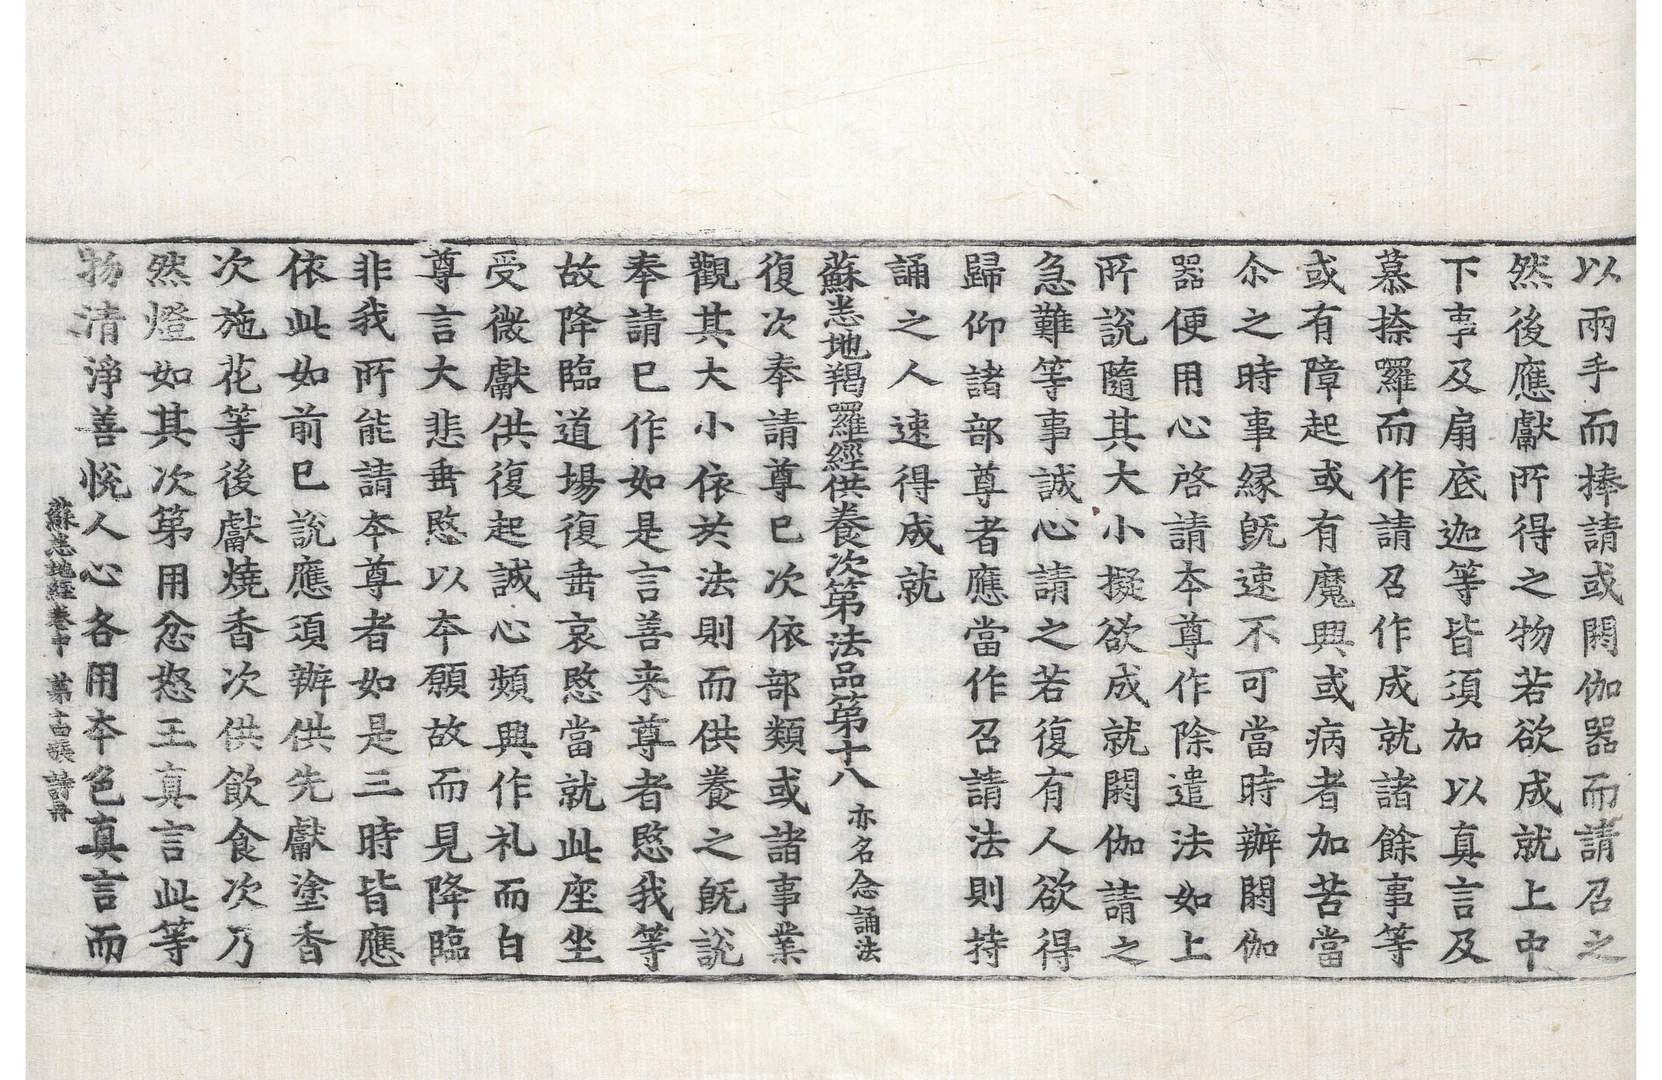 以兩手而捧請或閼伽器而請召之
然後應獻所得之物若欲成就上中
下事及扇底迦等皆須加以真言及
慕捺囉而作請召作成就諸餘事等
或有障起或有魔興或病者加苦當
尒之時事緣旣速不可當時辦閼伽
器便用心啓請本尊作除遣法如上
所說隨其大小擬欲成就閼伽請之
急難等事誠心請之若復有人欲得
歸仰諸部尊者應當作召請法則持
誦之人速得成就
蘇悉地羯囉經供養次第法品第十八 亦名念誦法
復次奉請尊已次依部類或諸事業
觀其大小依於法則而供養之旣說
奉請已作如是言善来尊者愍我等
故降臨道場復垂哀愍當就此座坐
受微獻供復起誠心頻興作礼而白
尊言大悲垂愍以本願故而見降臨
非我所能請本尊者如是三時皆應
依此如前已說應須辦供先獻塗香
次施花等後獻燒香次供飲食次乃
然燈如其次第用忿怒王真言此等
物清淨善悅人心各用本色真言而
蘇悉地經卷中 第十四張 詩冊